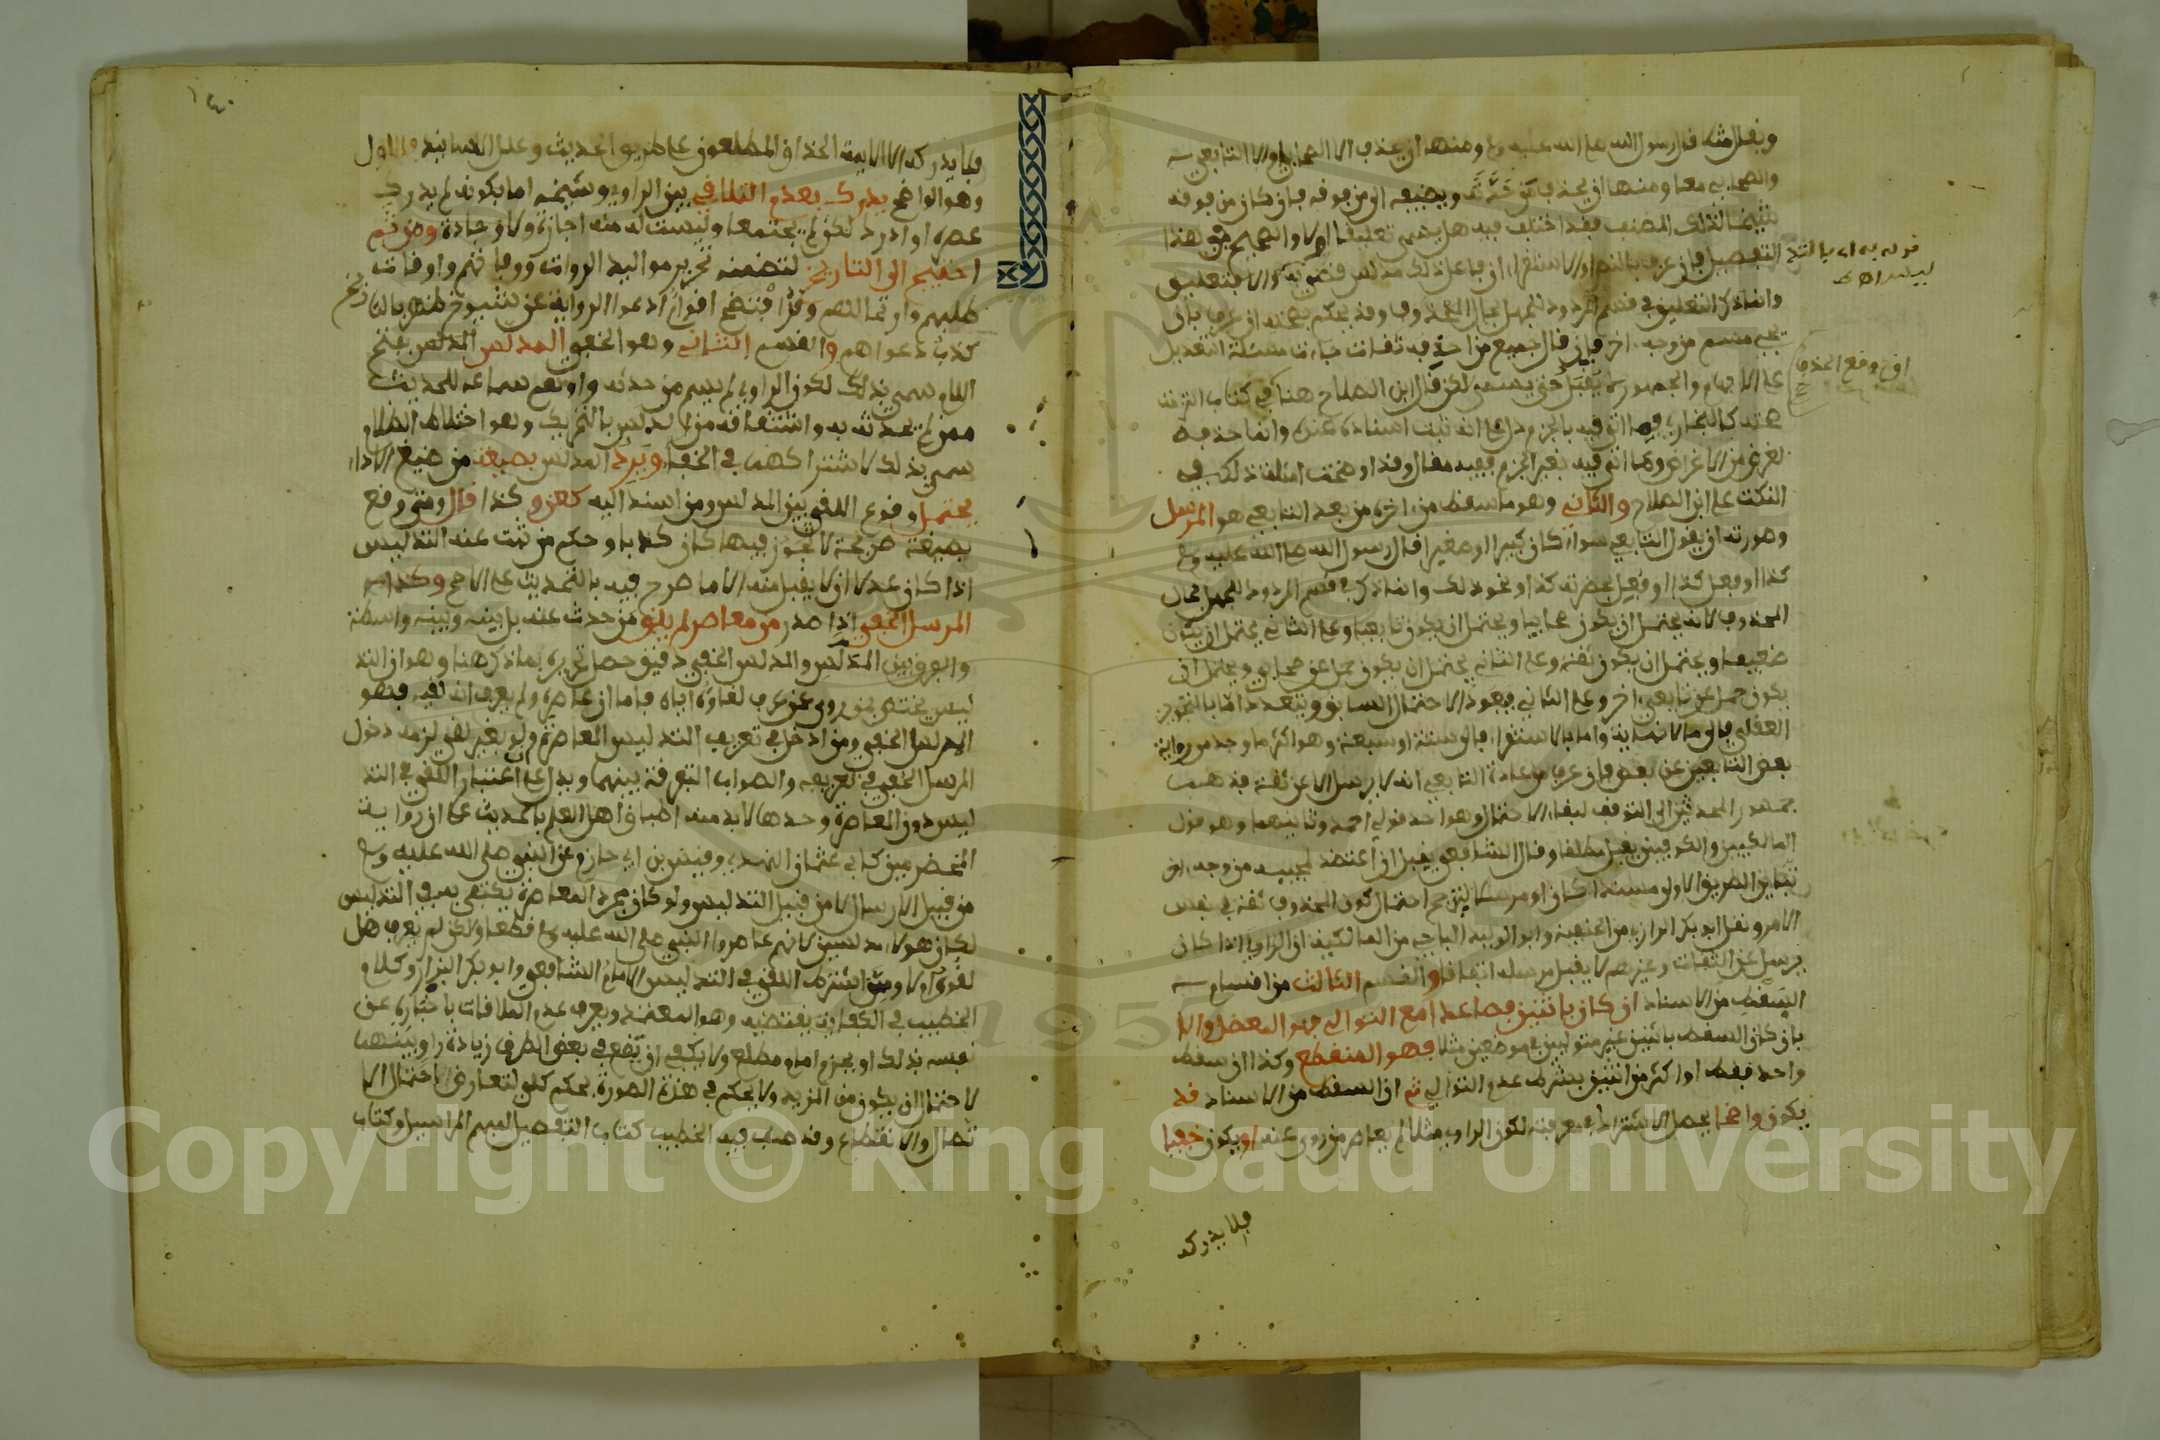 ويقال مثلا قال رسول الله صلى الله عليه وسلم ومنها ان يحذف الا الصحابي او الا التابعي
والصحابي معا ومنها ان يحذف من حدثه ويضيفه الى من فوقه فان كان من فوقه
شيخا لذلك المصنف فقد اختلف فيه هل يسمى تعليقا او لا والصحيح في هذا
التفصيل فان عرف بالنص او الاستقراء ان فاعل ذلك مدلس قضي به والا فتعليق
وانما ذكر التعليق في قسم المردود للجهل بحال المحذوف وقد يحكم بصحته ان عرف بان
يجيء مسمى من وجه اخر فان قال جميع من احذفه ثقات جاءت مسئلة التعديل
على الابهام والجمهور لا يقبل حتى يسمى لكن قال ابن الصلاح هنا في كتاب التزمت
صحته كالبخاري فما اتى فيه بالجزم دل على انه ثبت اسناده عنده وانما حذف
لغرض من الاغراض وما اتى فيه بغير الجزم ففيه مقال وقد اوضحت امثلة ذلك في
النكت على ابن الصلاح والثاني وهو ما سقط من اخره من بعد التابعي هو المرسل
وصورته ان يقول التابعي سواء كان كبيرا او صغيرا قال رسول الله صلى الله عليه وسلم
كذا او فعل كذا او فعل بحضرته كذا او نحو ذلك وانما ذكر في قسم المردود للجهل بحال
المحذوف لانه يحتمل ان يكون صحابيا ويحتمل ان يكون تابعيا وعلى الثاني يحتمل ان يكون
ضعيفا ويحتمل ان يكون ثقة وعلى الثاني يحتمل ان يكون حمل عن صحابي ويحتمل ان
يكون حمل عن تابعي اخر وعلى الثاني فيعود الاحتمال السابق ويتعدد اما بالتجويز
العقلي فالى ما لا نهاية له واما بالاستقراء فالى ستة او سبعة وهو اكثر ما وجد من رواية
بعض التابعين عن بعض فان عرف من عادة التابعي انه لا يرسل الا عن ثقة فذهب
جمهور المحدثين الى التوقف لبقاء الاحتمال وهو احد قولي احمد وثانيهما وهو قول
المالكيين والكوفيين يقبل مطلقا وقال الشافعي يقبل ان اعتضد بمجيئه من وجه اخر
يباين الطريق الاولى مسندا كان او مرسلا ليترجح احتمال كون المحذوف ثقة في نفس
الامر ونقل ابو بكر الرازي من الحنفية وابو الوليد الباجي من المالكية ان الراوي اذا كان
يرسل عن الثقات وغيرهم لا يقبل مرسله اتفاقا والقسم الثالث من اقسام
السقط من الاسناد ان كان باثنين فصاعدا مع التوالي فهو المعضل والا
بان كان السقط باثنين غير متواليين في موضعين مثلا فهو المنقطع وكذا ان سقط
واحد فقط او اكثر من اثنين بشرط عدم التوالي ثم ان السقط من الاسناد قد
يكون واضحا يحصل الاشتراك في معرفته لكون الراوي مثلا لم يعاصر من روى عنه او يكون خفيا
فلا يدركه
قوله به اي بالتدليس
فلا يدركه الا الايمة الحذاق المطلعون على طريق الحديث وعلل الاسانيد فالاول
وهو الواضح يدرك بعدم التلاقي بين الراوي وشيخه اما بكونه لم يدرك
عصره او ادركه لكن لم يجتمعا وليست له منه اجازة ولا وجادة ومن ثم
احتيج الى التاريخ لتضمنه تحرير مواليد الرواة ووفياتهم واوقات
طلبهم وارتحالهم وقد افتضح اقوام ادعوا الرواية عن شيوخ ظهر بالتاريخ
كذب دعواهم والقسم الثاني وهو الخفي المدلس المدلس بفتح
اللام سمي بذلك لكون الراوي لم يسم من حدثه واوهم سماعه للحديث
ممن لم يحدثه به واشتقاقه من الدلس بالتحريك وهو اختلاط الظلام
سمي بذلك لاشتراكهما في الخفاء ويرد المدلس بصيغة من صيغ الاداء
يحتمل وقوع اللقي بين المدلس ومن اسند اليه كعن و كذا قال ومتى وقع
بصيغة صريحة لا تجوز فيها كان كذبا وحكم من ثبت عنه التدليس
اذا كان عدلا ان لا يقبل منه الا ما صرح فيه بالتحديث على الاصح وكذا
المرسل الخفي اذا صدر من معاصر لم يلق من حدث عنه بل بينه وبينه واسطة
والفرق بين المدلس والمدلس الخفي دقيق حصل تحريره بما ذكر هنا وهو ان التد
ليس يختص بمن روى عمن عرف لقاؤه اياه فاما ان عاصره ولم يعرف انه لقيه فهو
المرسل الخفي ومن ادخل في تعريف التدليس المعاصرة ولو بغير لقي لزمه دخول
المرسل الخفي في تعريفه والصواب التفرقة بينهما ويدل على اعتبار اللقي في التد
ليس دون المعاصرة وحدها لا بد منه اطباق اهل العلم بالحديث على ان رواية
المخضرمين كابي عثمان النهدي وقيس بن ابي حازم عن النبي صلى الله عليه وسلم
من قبيل الارسال لا من قبيل التدليس ولو كان مجرد المعاصرة يكتفى به في التدليس
لكان هولاء مدلسين لانهم عاصروا النبي صلى الله عليه وسلم قطعا ولكن لم يعرف هل
لقوه ام لا وممن اشترط اللقي في التدليس الامام الشافعي وابو بكر البزار وكلام
الخطيب في الكفاية يقتضيه وهو المعتمد ويعرف عدم الملاقات باخباره عن
نفسه بذلك او بجزم امام مطلع ولا يكفي ان يقع في بعض الطرق زيادة راو بينهما
لاحتمال ان يكون من المزيد ولا يحكم في هذه الصورة بحكم كلي لتعارض احتمال الا
تصال والانقطاع وقد صنف فيه الخطيب كتاب التفصيل لمبهم المراسيل وكتاب
Copyright © King Saud University
1957